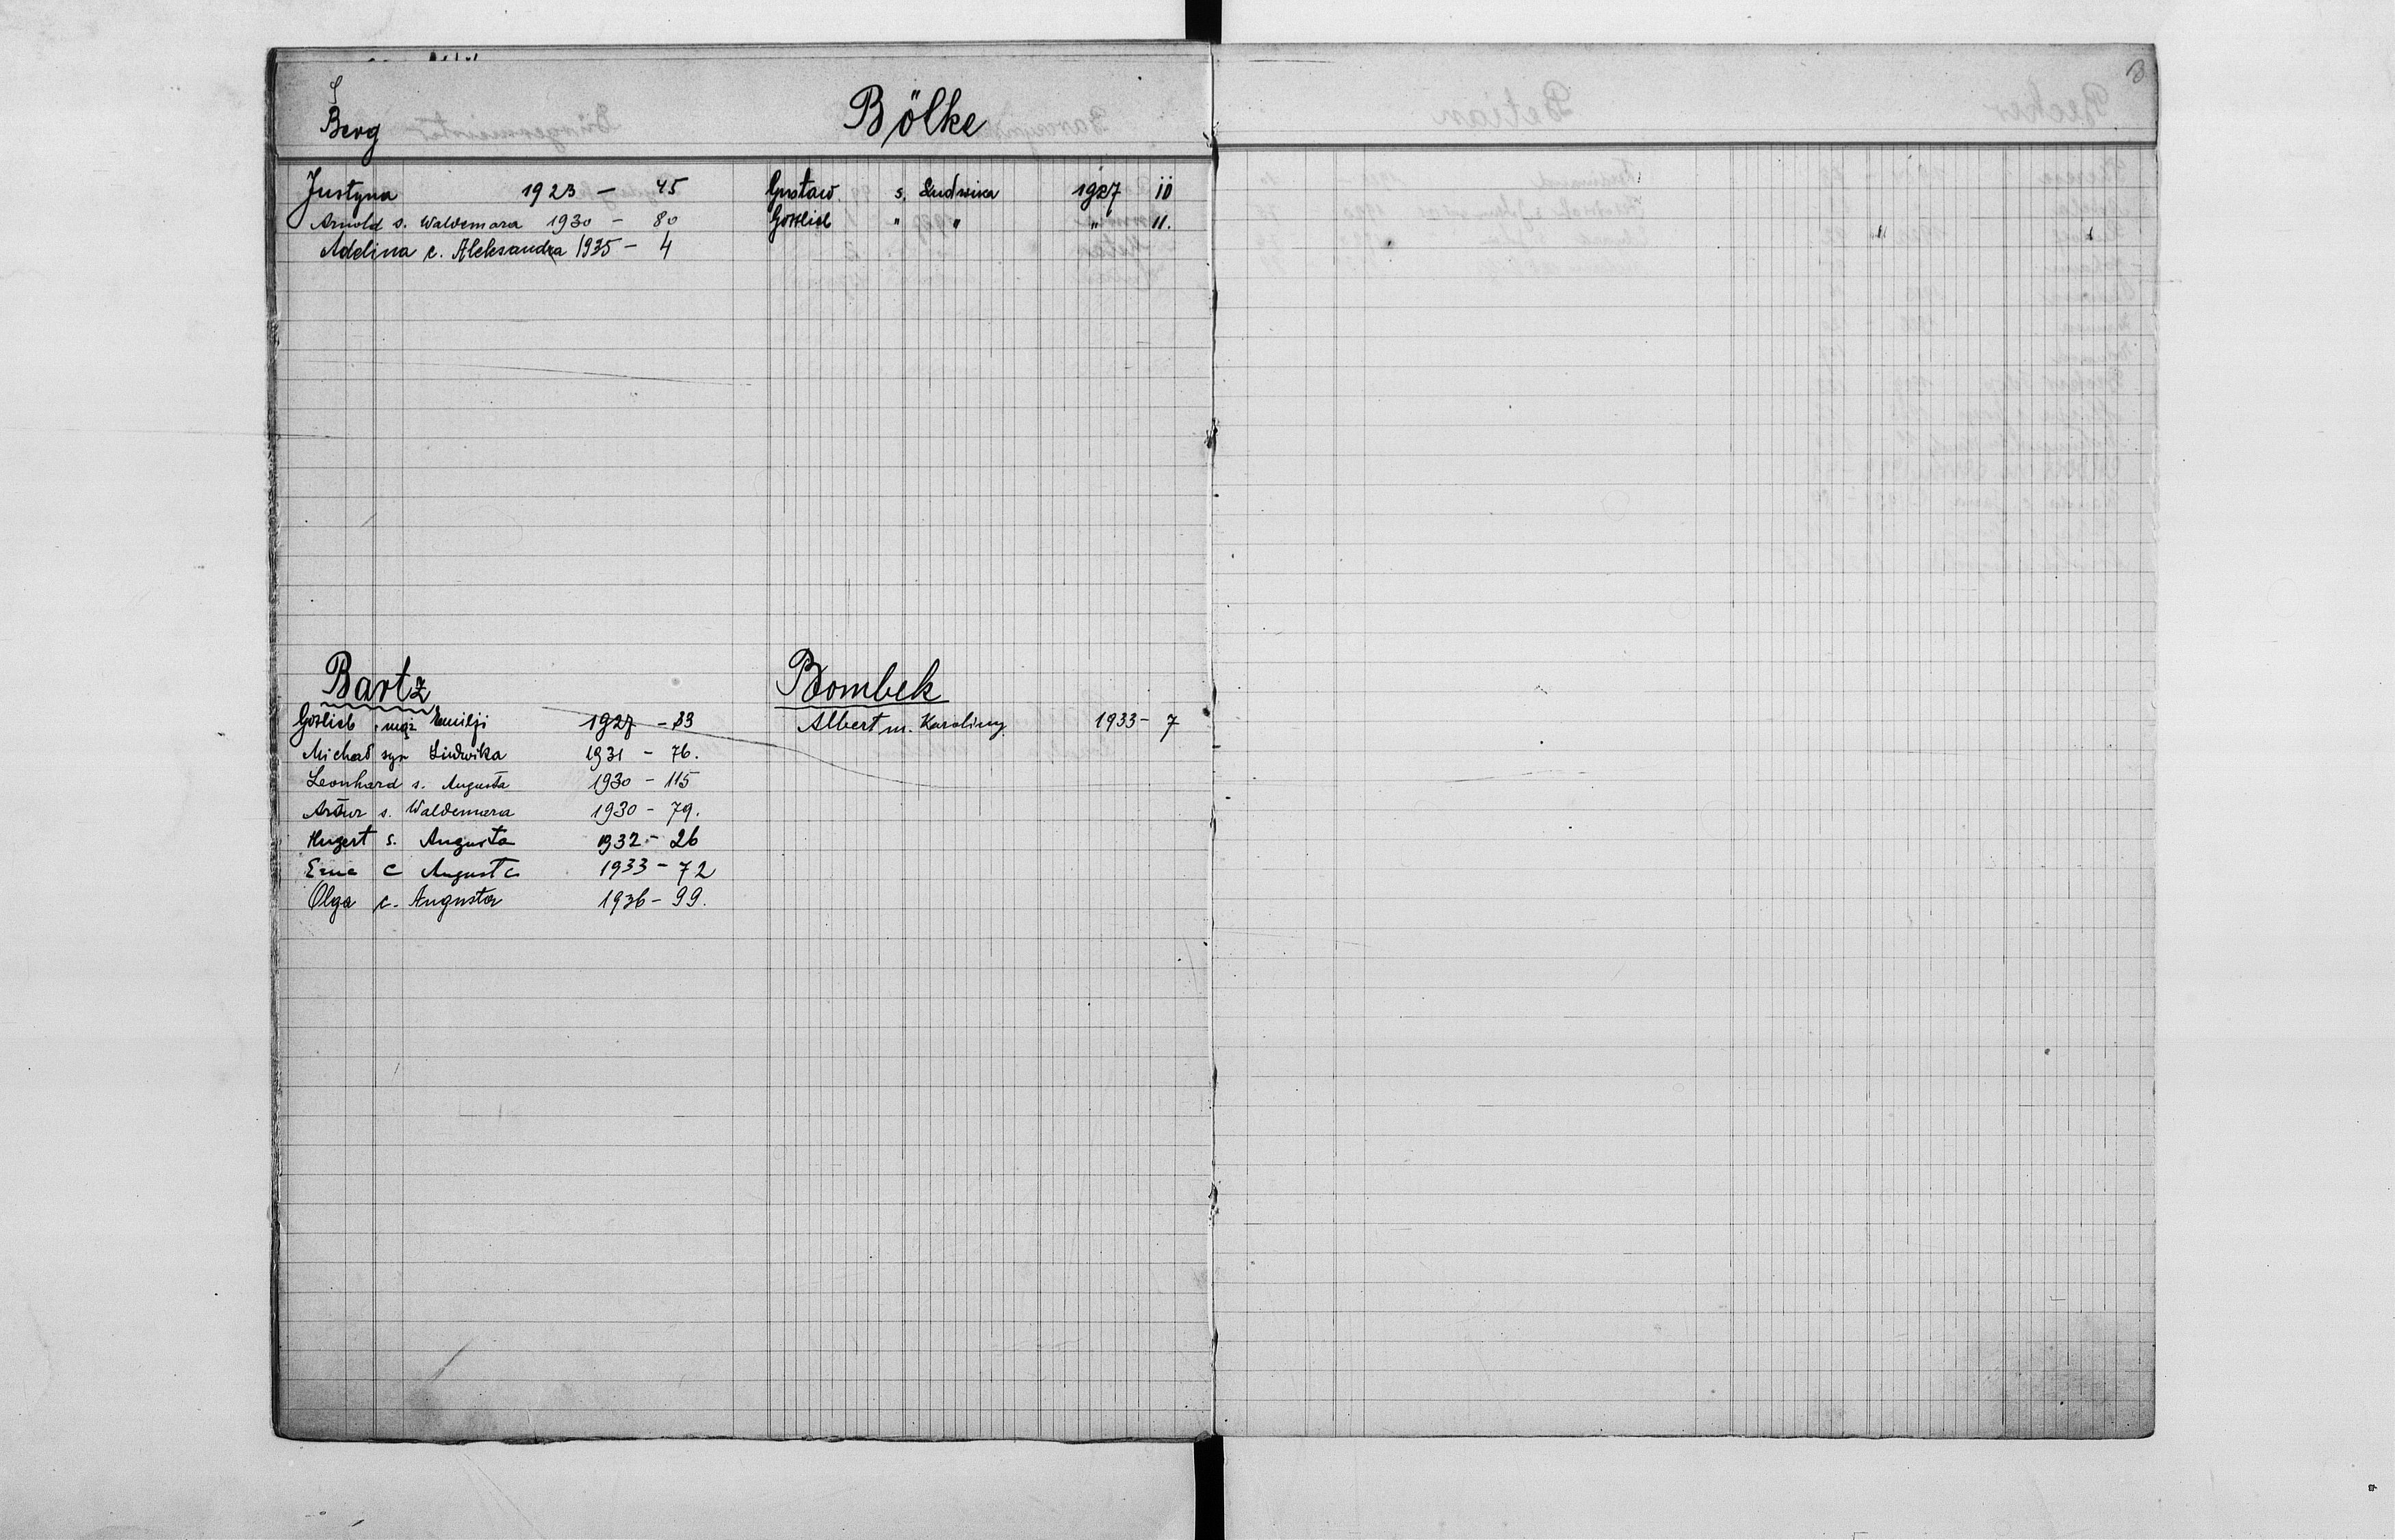 Berg
Justyna 1923 – 45
Arnold s. Waldemara 1930 – 80
Adelina c. Aleksandra 1935 – 4
Bölke
Gustaw. s. Ludwika 1927 10
Gottlieb " " " 11.
Bartz
Gottlieb mąż Emilji 1927 – 83
Michał syn Ludwika 1931 – 76.
Leonhard s. Augusta 1930 – 115
Artur s. Waldemara 1930 – 79.
s. Augusta 1932 – 26
c Augusta 1933 – 72
Olga c. Augusta 1936 – 99.
Bombek
Albert m. Karoliny 1933 – 7
3